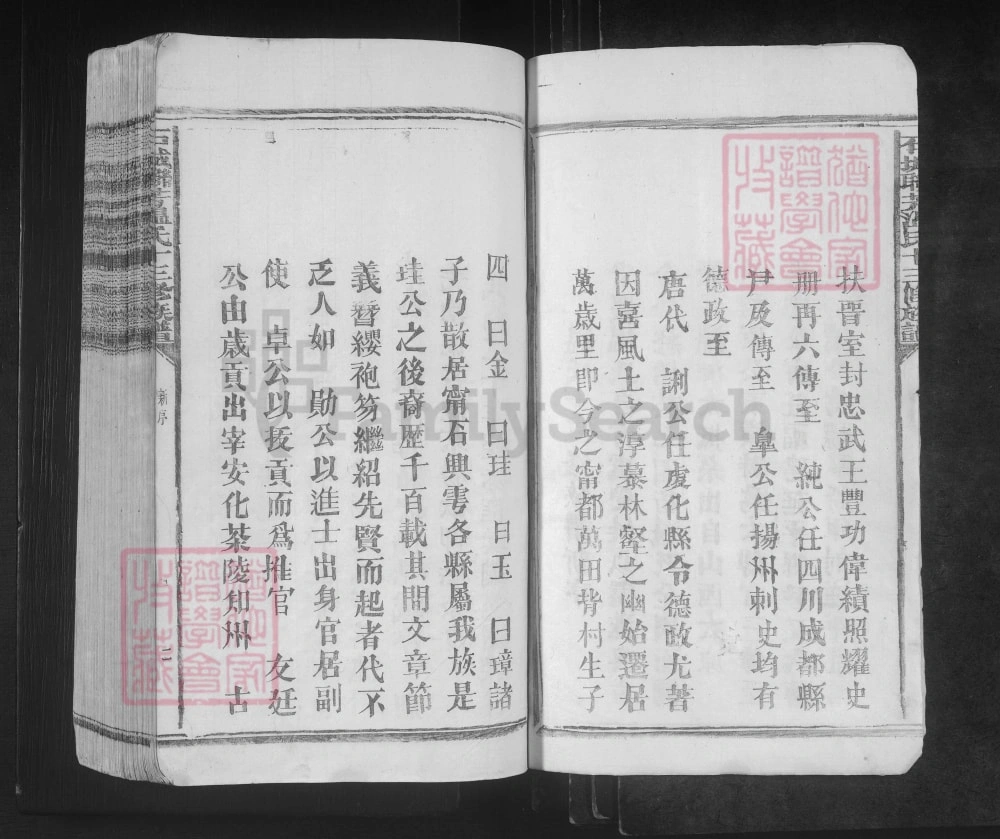 扶晋室封忠武王豐功偉績照耀史
册再六傳至 純公任四川成都縣
尹及傳至 臯公任揚州刺史均有
德政至
唐代 訓公任虔化縣令德政尤著
因喜風土之淳慕林壑之幽始遷居
萬歲里即今之甯都萬田背村生子
四 曰金 曰珪 曰玉 曰璋諸
子乃散居甯石興雩各縣屬我族是
珪公之後裔歷千百載其間文章節
義簪纓袍笏繼紹先賢而起者代不
乏人如 勛公以進士出身官居副
使 卓公以拔貢而爲推官 友廷
公由歲貢出宰安化茶陵知州 古
新序
二
石城聯芳溫氏十三修族譜
猶他家譜學會收藏
猶他家譜學會收藏
FamilySearch